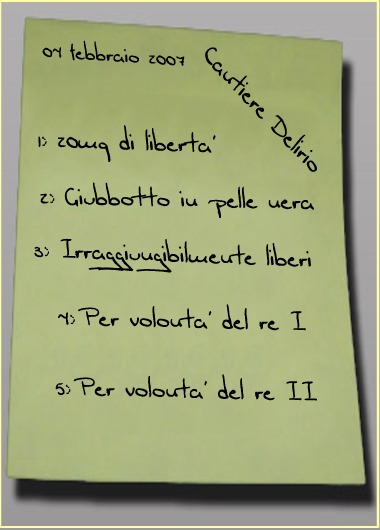 04 febbraio 2007
Cantiere Delirio
1) 20mg di liberta'
2) Giubbotto in pelle vera
3) Irraggiungibilmente liberi
4) Per volonta' del re I
5) Per volonta' del re II